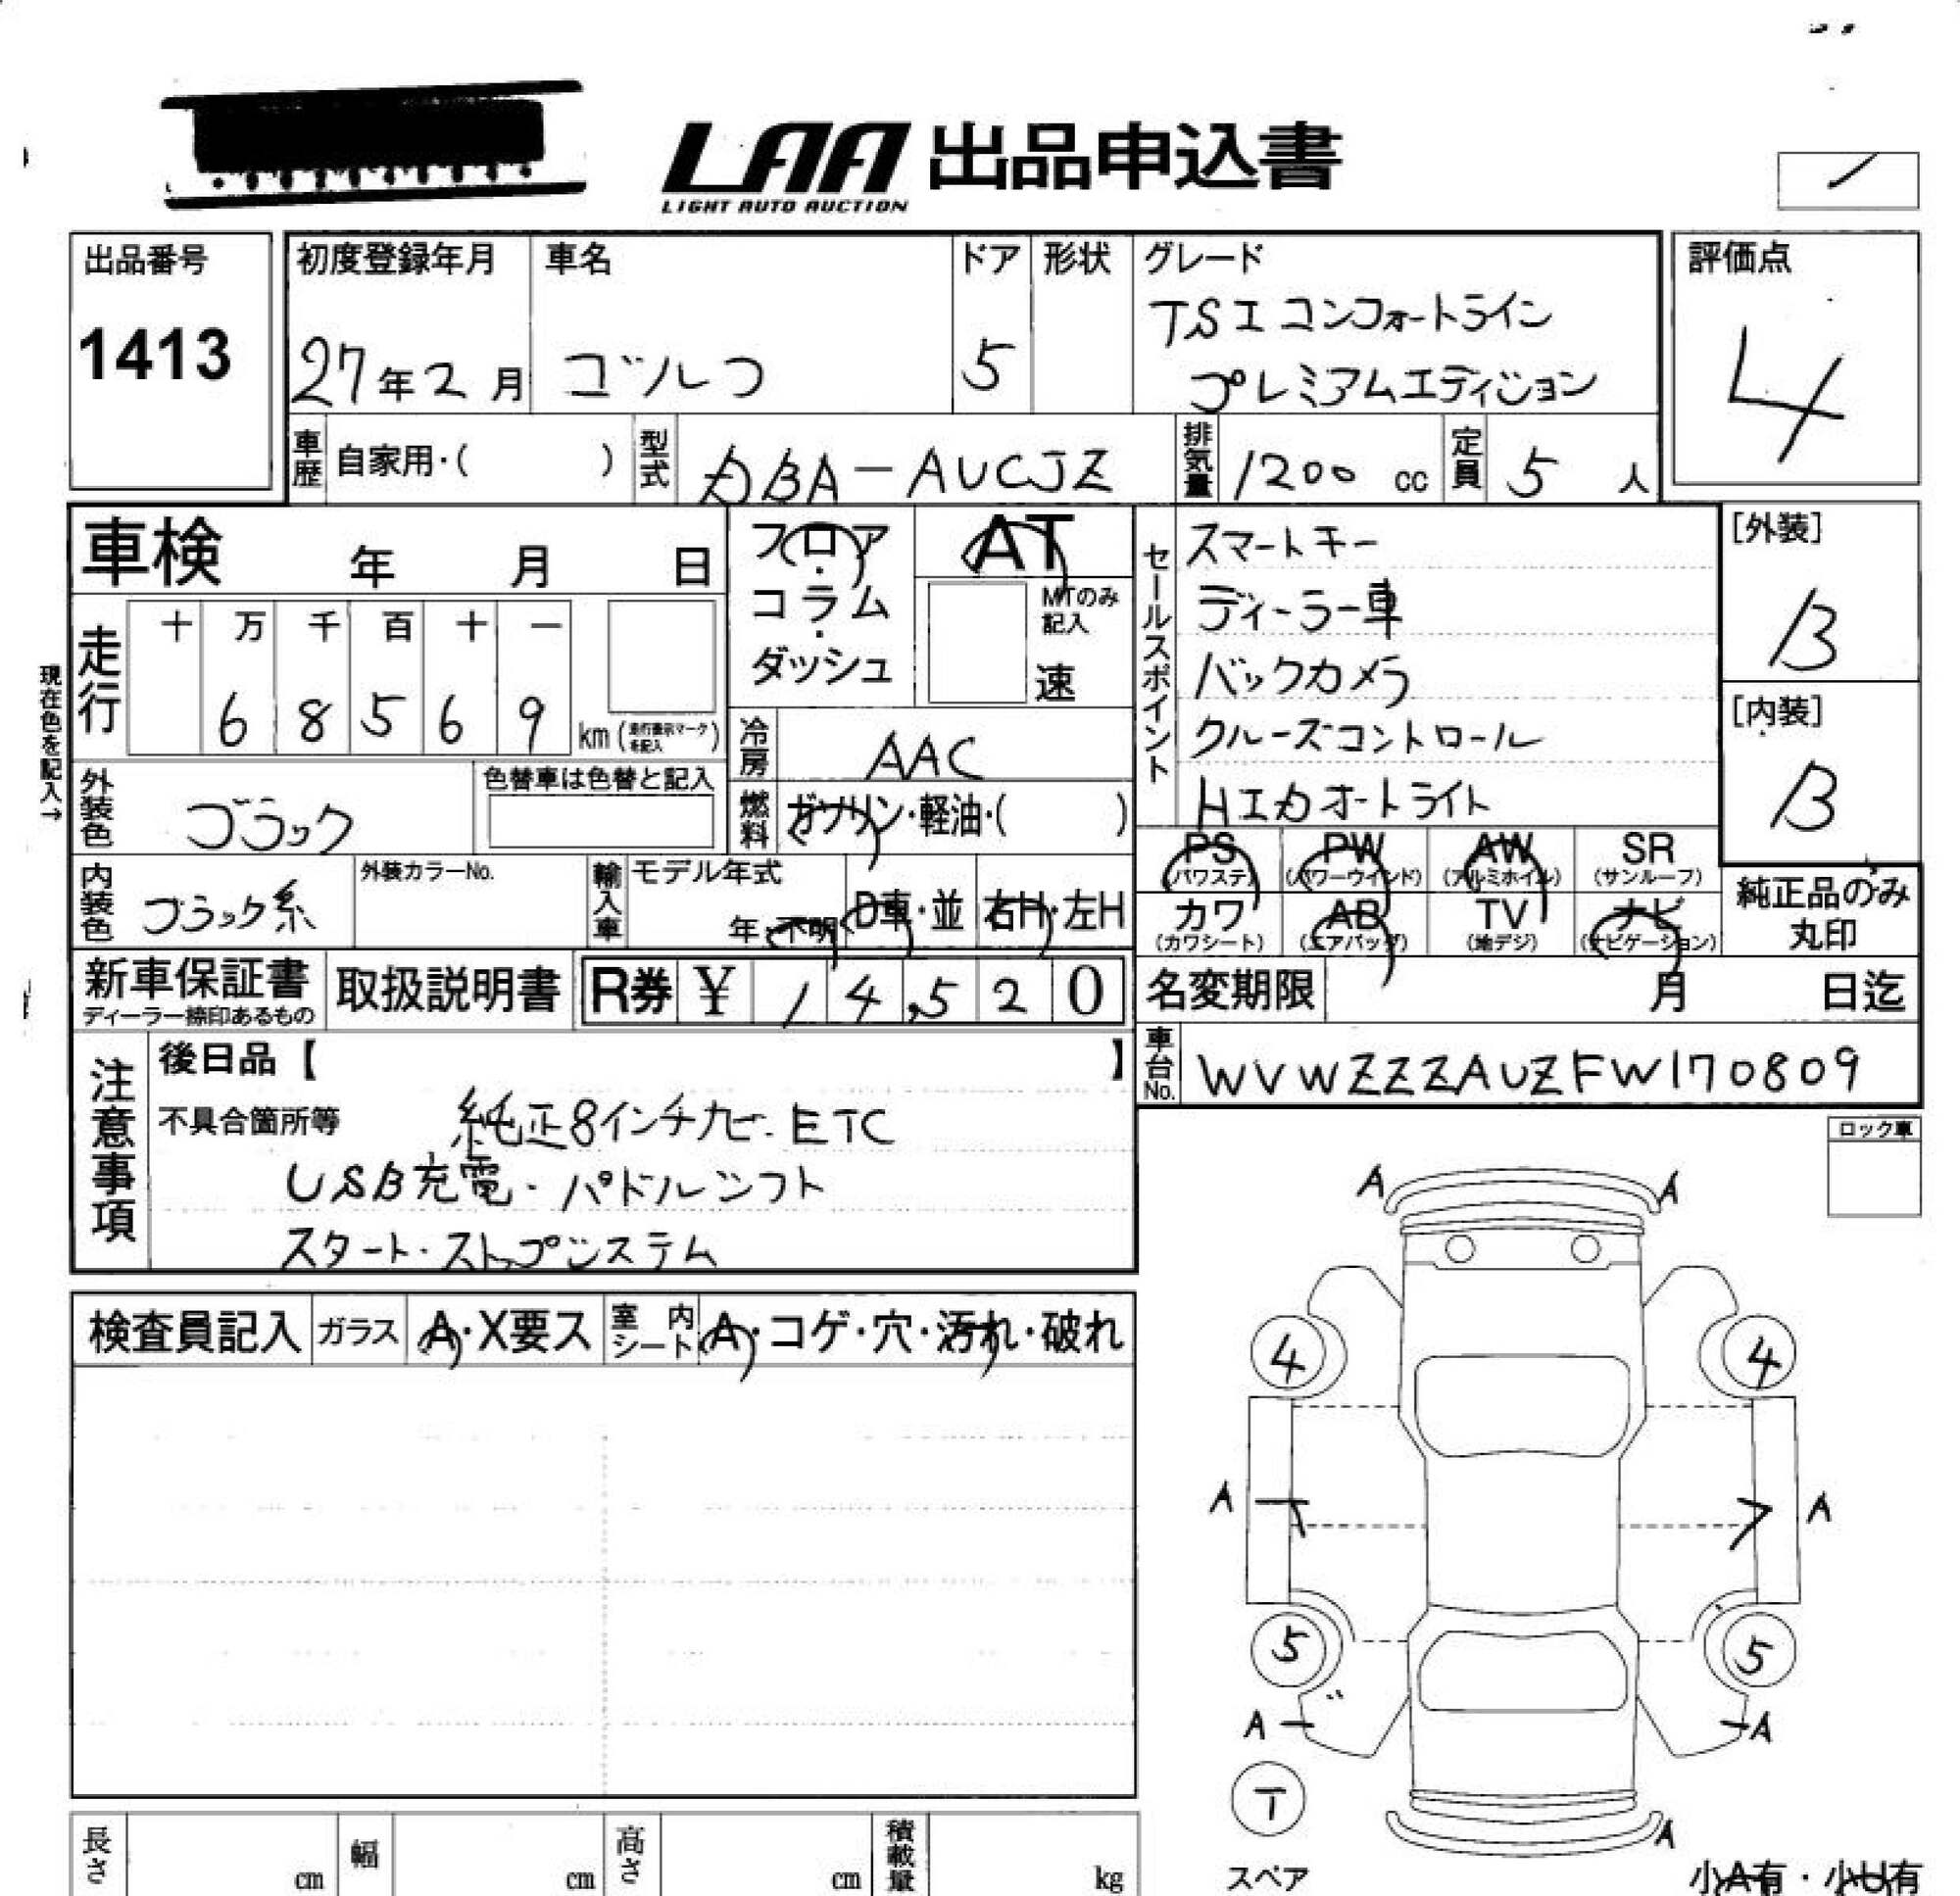 LAA 出品申込書
LIGHT AUTO AUCTION
出品番号
1413
初度登録年月
27年2月
車名
ゴルフ
ドア
5
形状
グレード
TSI コンフォートライン
プレミアムエディション
評価点
4
車歴 自家用・( )
型式 DBA-AUCJZ
排気量 1200 cc
定員 5 人
車検 年 月 日
現在色を記入→
走行
十 万 千 百 十 一
6 8 5 6 9 km(走行表示マークを記入)
フロア・コラム・ダッシュ
AT
MTのみ記入
速
冷房 AAC
燃料 ガソリン・軽油・( )
外装色 ブラック
色替車は色替と記入
内装色 ブラック系
外装カラーNo.
輸入車
モデル年式
年・不明
D車・並
右H・左H
セールスポイント
スマートキー
ディーラー車
バックカメラ
クルーズコントロール
HIDオートライト
[外装]
B
[内装]
B
PS (パワステ)
PW (パワーウインド)
AW (アルミホイル)
SR (サンルーフ)
カワ (カワシート)
AB (エアバッグ)
TV (地デジ)
ナビ (ナビゲーション)
純正品のみ
丸印
新車保証書
ディーラー捺印あるもの
取扱説明書
R券 ¥ 14,520
名変期限 月 日迄
車台No. WVWZZZAUZFW170809
注意事項
後日品【 】
不具合箇所等 純正8インチナビ・ETC
USB充電・パドルシフト
スタート・ストップシステム
ロック車
検査員記入
ガラス A・X要ス
室内シート A・コゲ・穴・汚れ・破れ
A A
4 4
A A
5 5
A A
T
スペア
A
小A有・小U有
長さ cm
幅 cm
高さ cm
積載量 kg